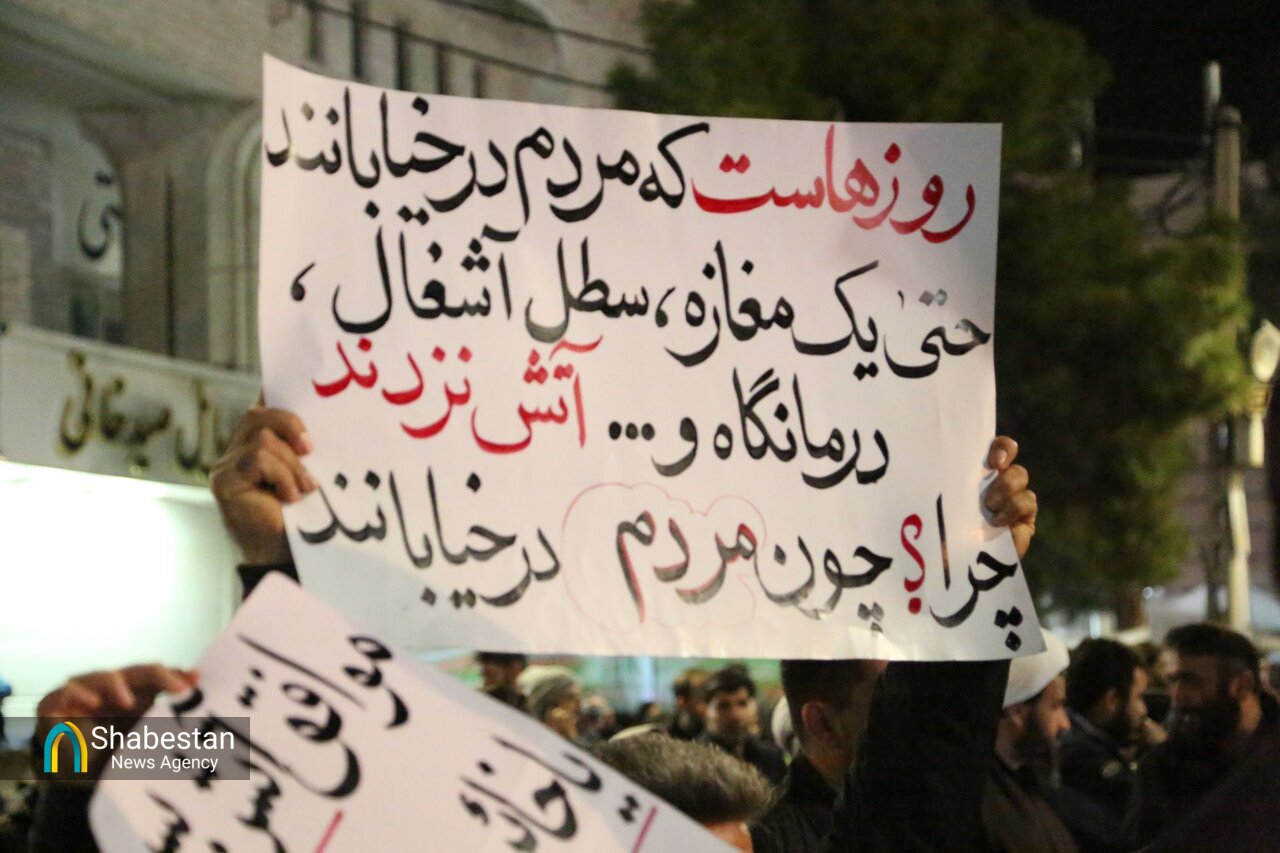 روزهاست که مردم در خیابانند
حتیٰ یک مغازه، سطل آشغال،
درمانگاه و... آتش نزدند
چرا؟ چون مردم در خیابانند
موافق آتش
یا خائن
Shabestan
News Agency